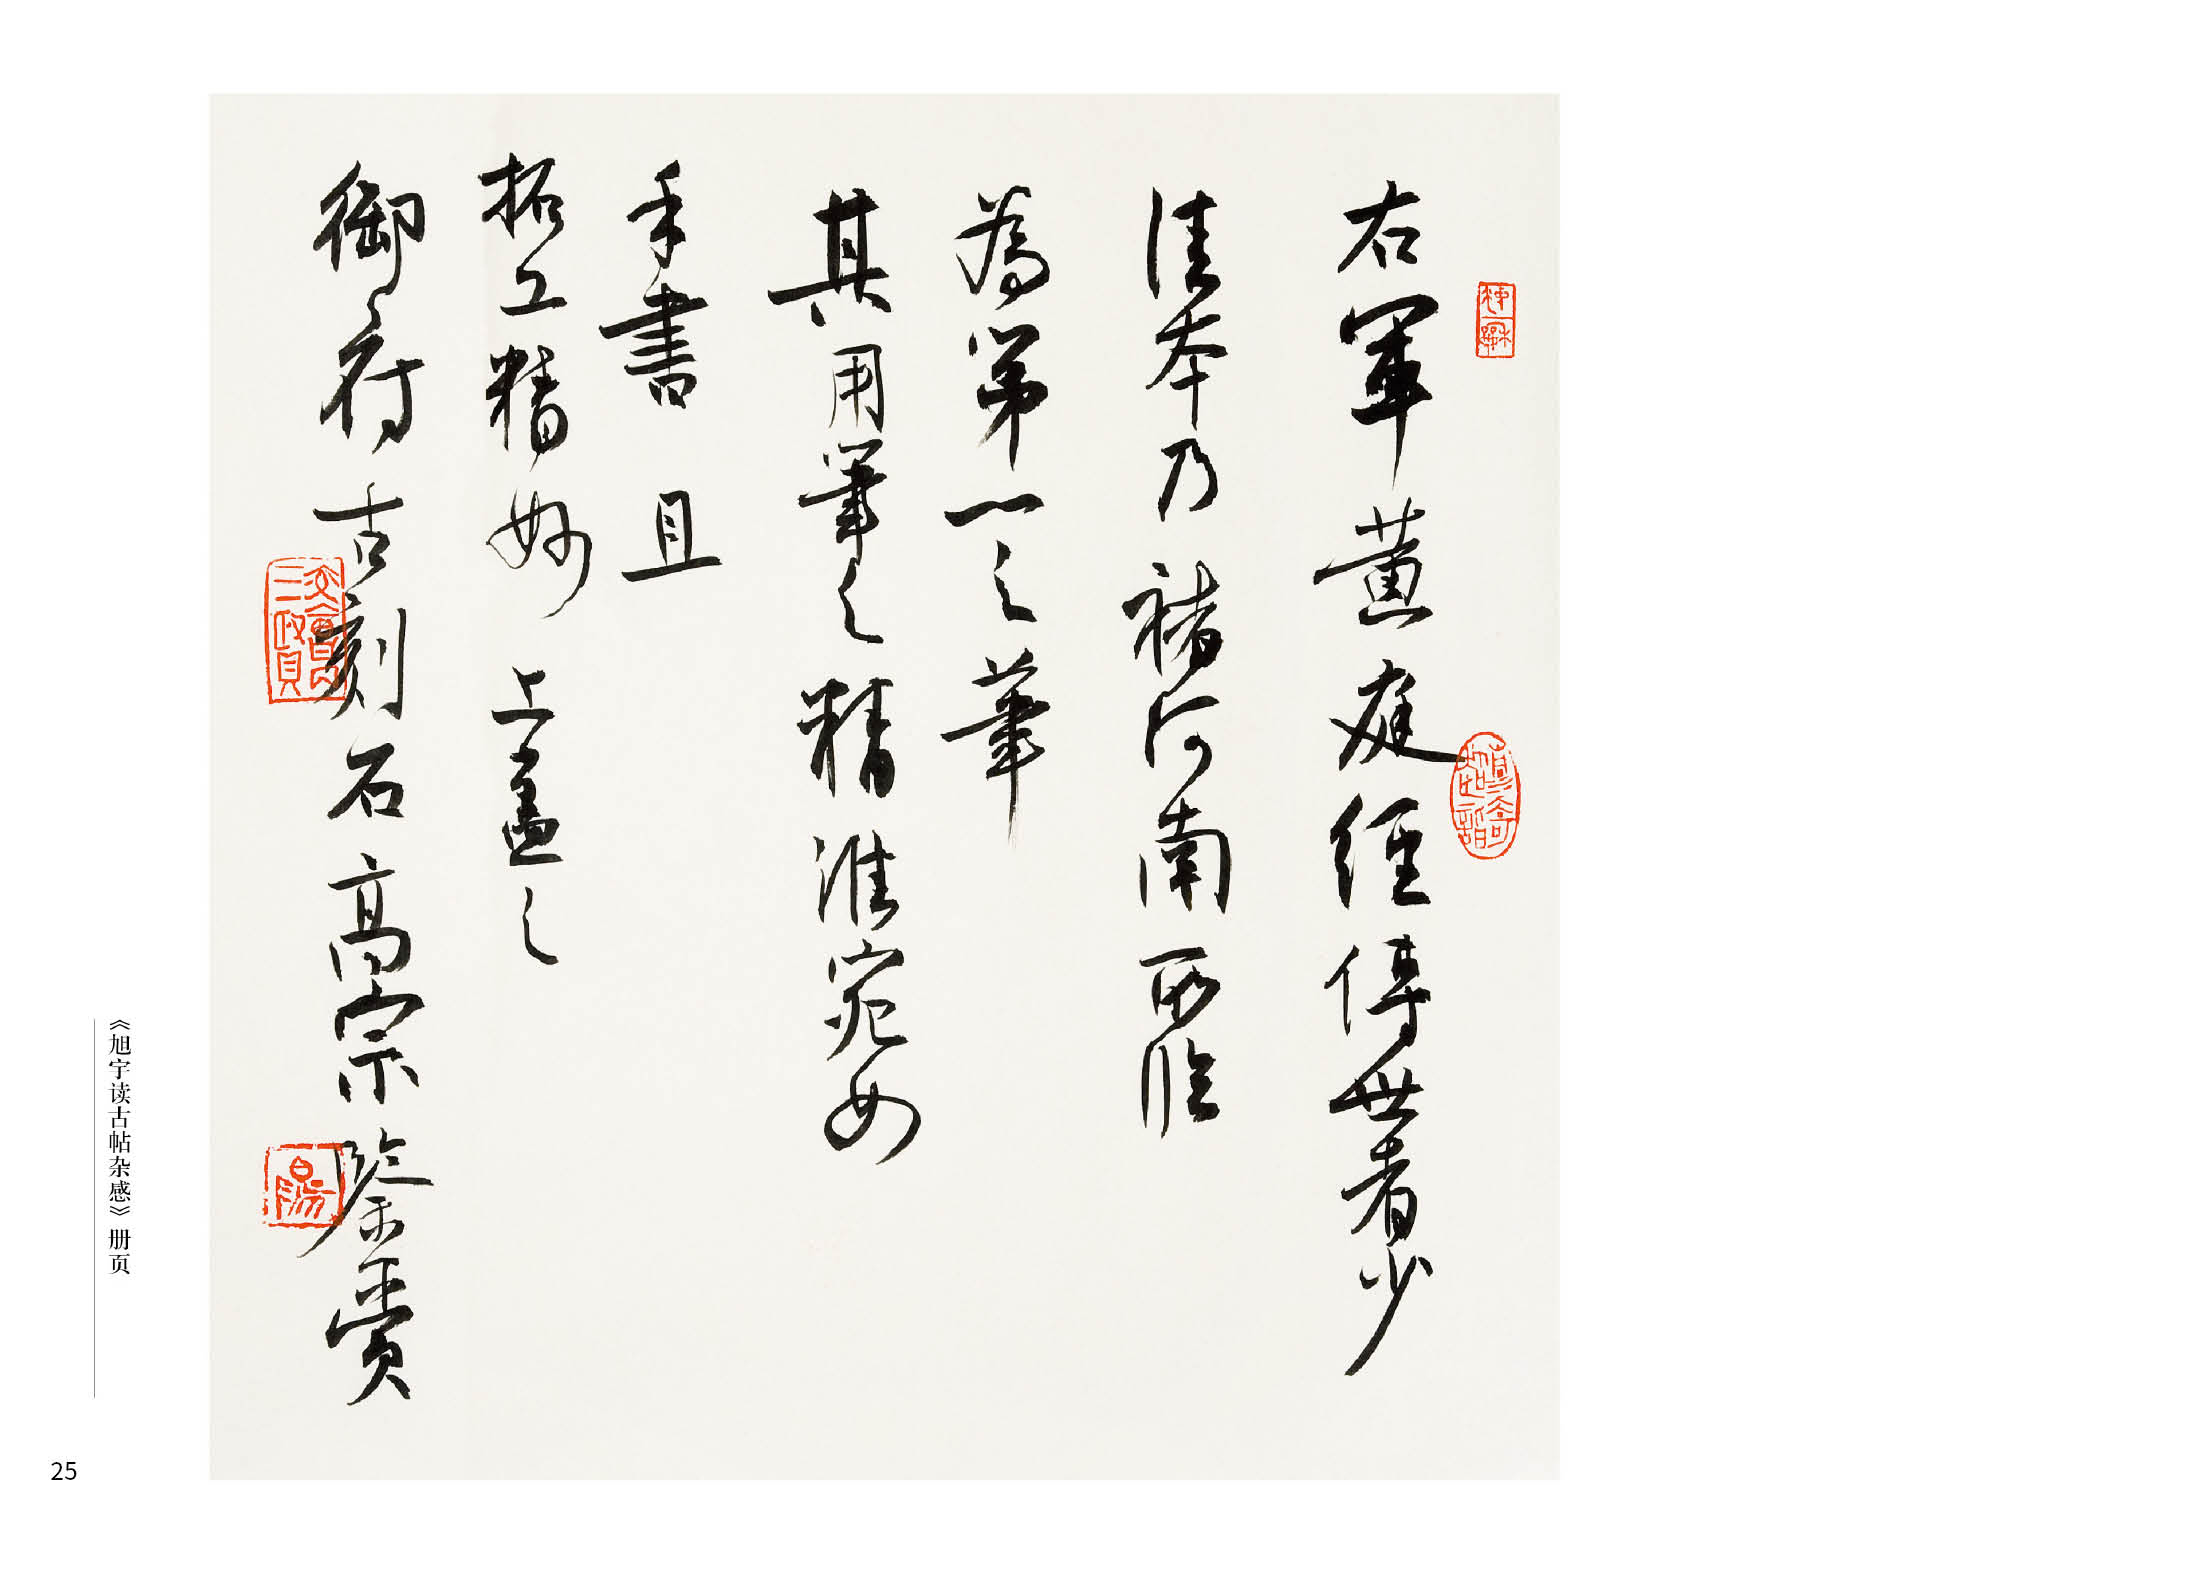 右軍黃庭經傳世者少
佳本乃褚河南所臨
為第一之筆
其用筆之精淮宛如
手書且
拓工精妙上盖之
御府古刻石高宗鑒賞
《旭宇读古帖杂感》册页
25